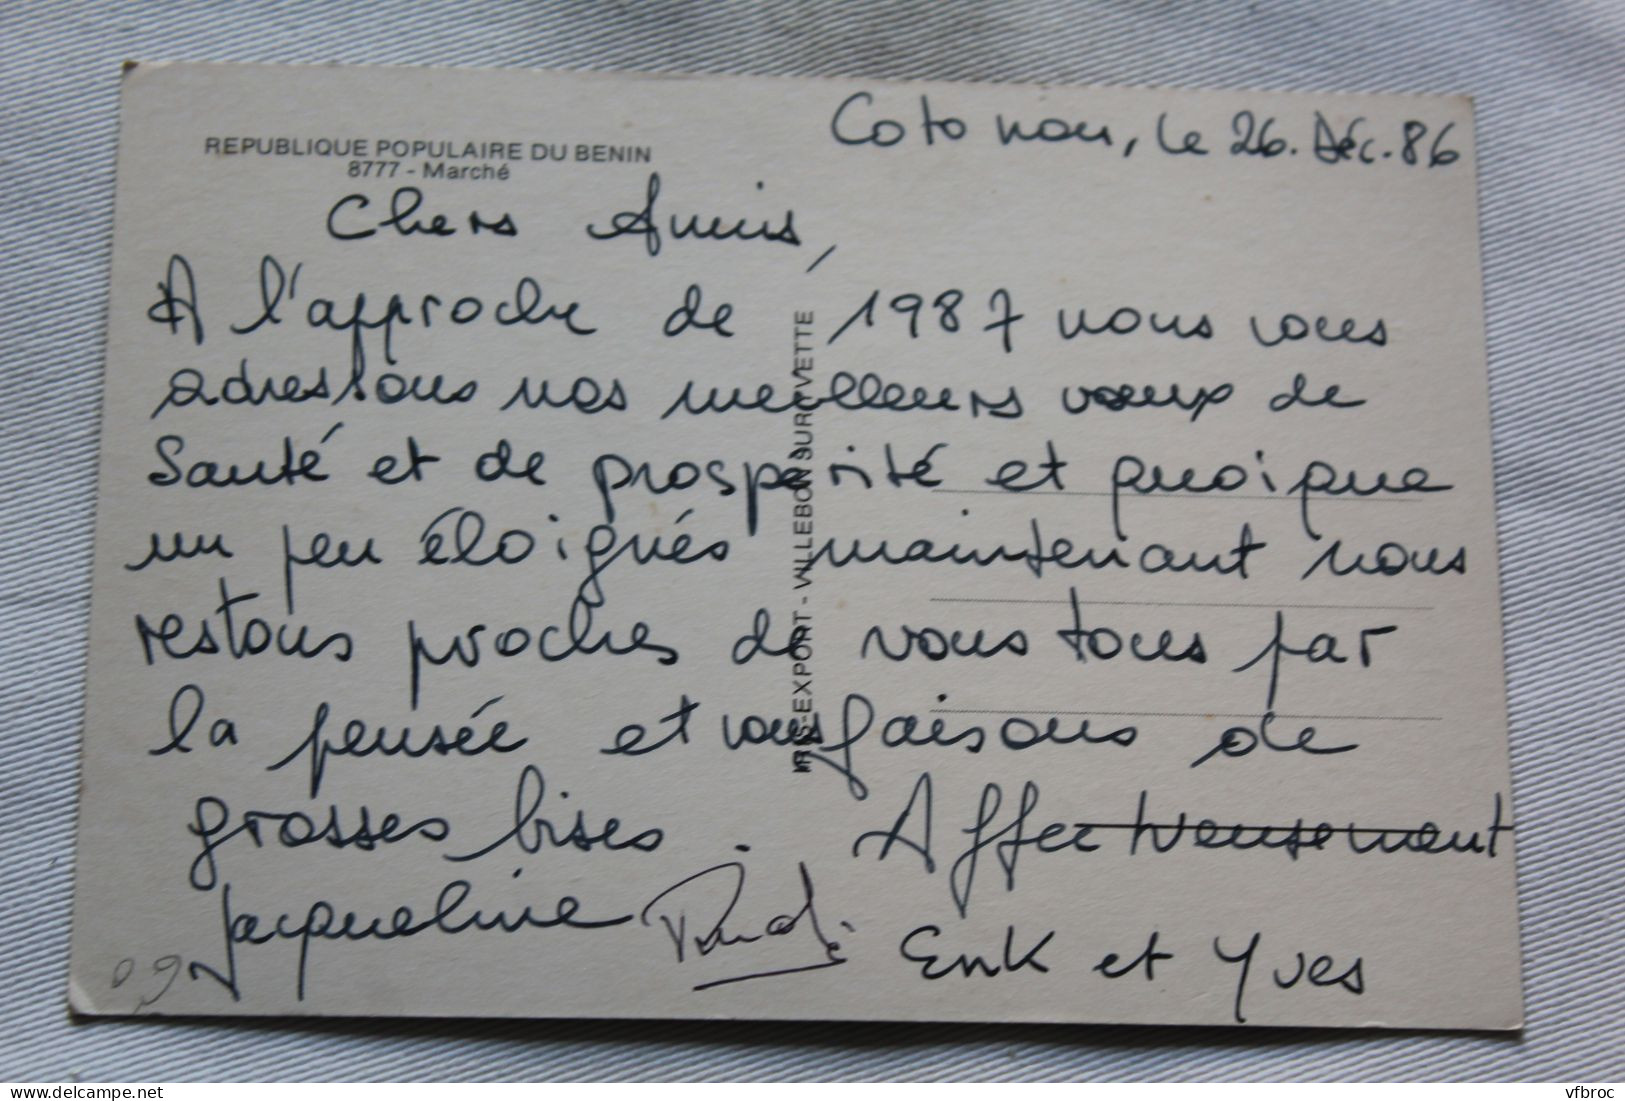 REPUBLIQUE POPULAIRE DU BENIN
8777 - Marché
Cotonou, le 26. Déc. 86
Chers Amis,
A l'approche de 1987 nous vous
adressons nos meilleurs vœux de
Santé et de prospérité et quoique
un peu éloignés maintenant nous
restons proches de vous tous par
la pensée et vous faisons de
grosses bises. Affectueusement
Jacqueline
et Yves
IRIS-EXPORT - VILLEBON SUR YVETTE
delcampe.net
vfbroc